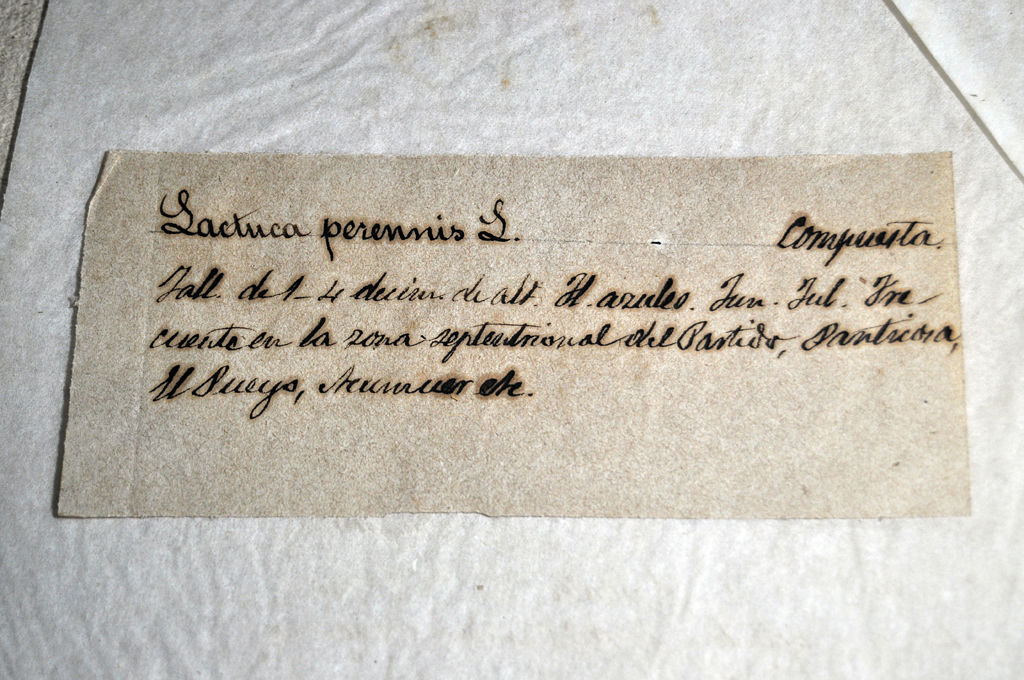 Lactuca perennis L. Compuesta.
Tall. de 1-4 decim. de alt. Fl. azules. Jun. Jul. Fre-
cuente en la zona septentrional del Partido, Panticosa,
El Pueyo, Acumuer etc.